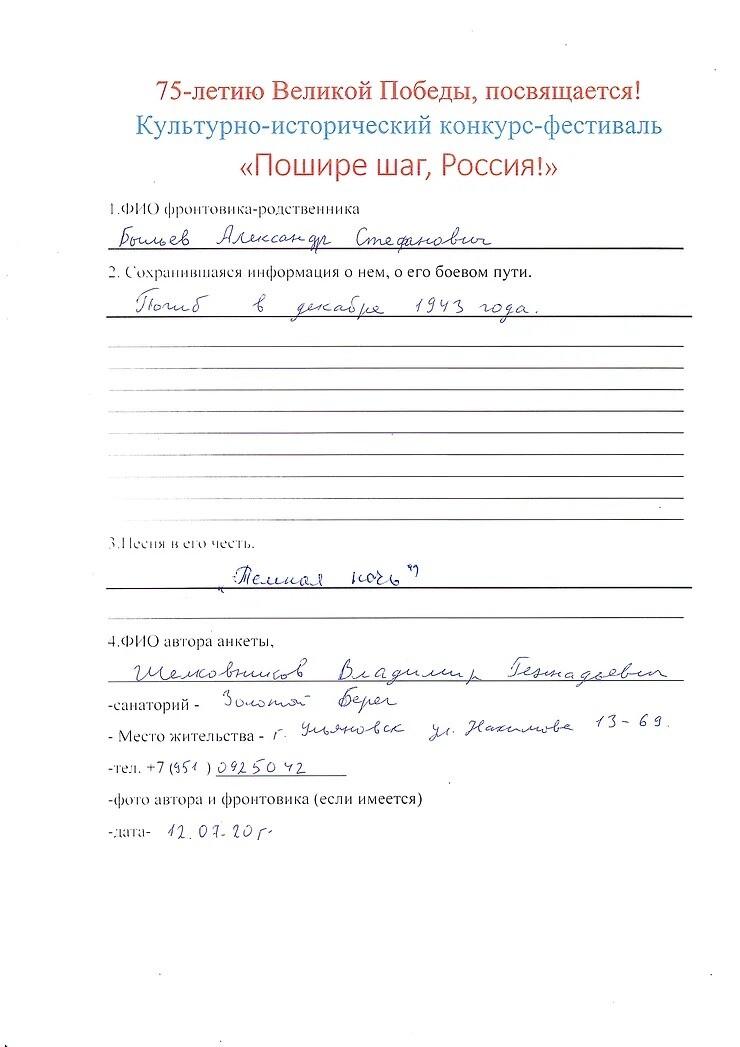 75-летию Великой Победы, посвящается!
Культурно-исторический конкурс-фестиваль
«Пошире шаг, Россия!»
1.ФИО фронтовика-родственника
Александр Стефанович
2. Сохранившаяся информация о нем, о его боевом пути.
Погиб в декабре 1943 года.
3.Песня в его честь.
„Темная ночь"
4.ФИО автора анкеты,
Шелковников Владимир Геннадьевич
-санаторий - Золотой берег
- Место жительства - г. Ульяновск ул. Нахимова 13-69.
-тел. +7 (951 ) 0925042
-фото автора и фронтовика (если имеется)
-дата- 12.07.20 г.